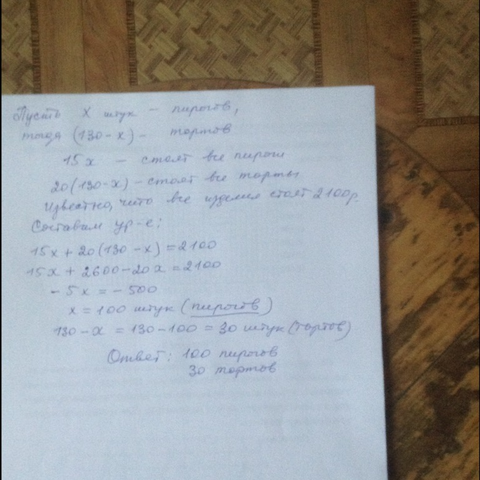 Пусть х штук – пирогов,
тогда (130-х) – тортов
15х – стоят все пироги
20(130-х) – стоят все торты.
Известно, что все изделия стоят 2100р.
Составим ур-е:
15х + 20(130-х) = 2100
15х + 2600-20х = 2100
-5х = -500
х = 100 штук (пирогов)
130-х = 130-100 = 30 штук (тортов)
Ответ: 100 пирогов
30 тортов